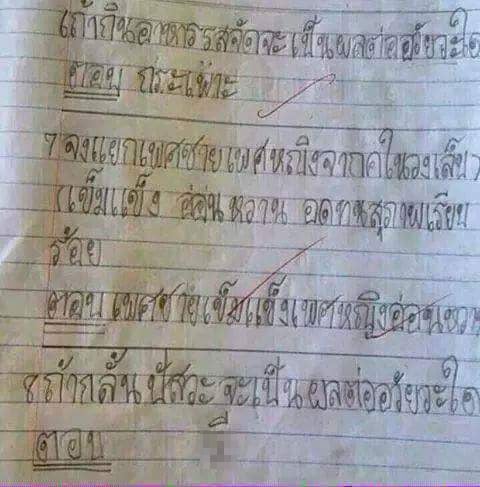 6ถ้ากินอาหารรสจัดจะเป็นผลต่ออวัยวะใด
ตอบ กระเพาะ
7 จงแยกเพศชายเพศหญิงจากคำในวงเล็บ
(เข้มแข็ง อ่อนหวาน อดทนสุภาพเรียบ
ร้อย
ตอบ เพศชายเข้มแข็งเพศหญิงอ่อนหวาน
8.ถ้ากลั้นปัสวะ จะเป็นผลต่ออวัยวะใด
ตอบ